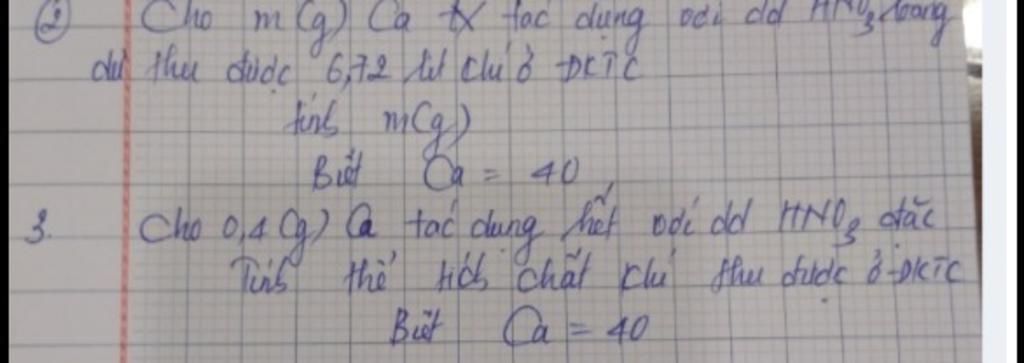 ② Cho m(g) Ca tác dụng với dd HNO₃ loãng
dư thu được 6,72 lít khí ở ĐKTC
tính m(g)
Biết Ca = 40
3. Cho 0,4 (g) Ca tác dụng hết với dd HNO₃ đặc
Tính thể tích chất khí thu được ở ĐKTC
Biết Ca = 40